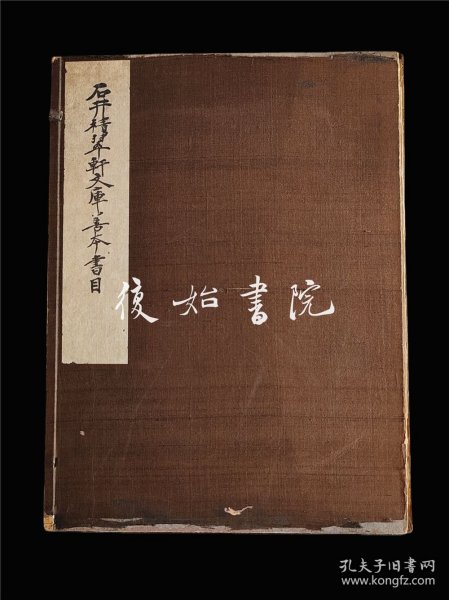 石井積翠軒文庫善本書目
復始書院
孔夫子旧书网
www.kongfz.com